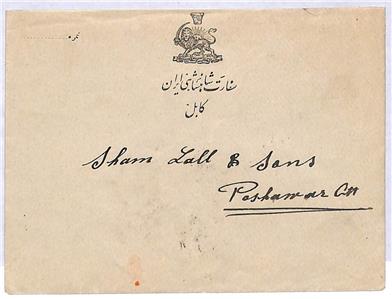 نمره ............
سفارت شاهنشاهی ایران
کابل
Sham Lall & Sons
Peshawar Ctt